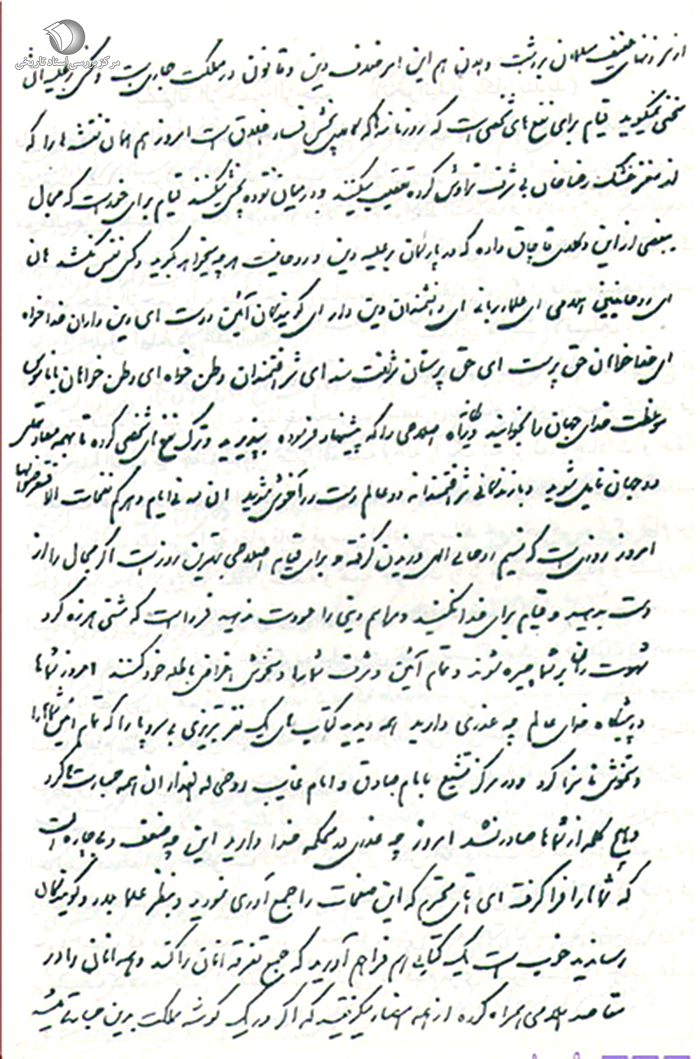 مرکز بررسی اسناد تاریخی
از سر زنهای عفیف مسلمان برداشت و الان هم این امر خلاف دین و قانون در مملکت جاری است و کسی بر علیه آن
سخنی نمیگوید قیام برای نفع های شخصی است که روزنامه ها که کالای پخش فساد اخلاق است امروز هم همان نقشه ها را که
از مغز خشک رضاخان بی شرف تراوش کرده تعقیب میکنند و در میان توده پخش میکنند قیام برای خود است که مجال
ببعضی از این وکلای قاچاق داده که در پارلمان بر علیه دین و روحانیت هر چه میخواهد بگوید و کسی نفس نکشد هان
ای روحانیین اسلامی ای علماء ربانی ای دانشمندان دین دار ای گویندگان آئین دوست ای دین داران خداخواه
ای خداخواهان حق پرست ای حق پرستان شرافتمند ای شرافتمندان وطن خواه ای وطن خواهان باناموس
موعظت خدای جهان را بخوانید و یگانه راه اصلاحی را که پیشنهاد فرموده بپذیرید و ترک نفع های شخصی کرده تا بهمه سعادتهای
دو جهان نایل شوید و با زندگانی شرافتمندانه دو عالم دست در آغوش شوید ان لله فی ایام دهرکم نفحات الا فتعرضوا لها
امروز روزی است که نسیم روحانی الهی وزیدن گرفته و برای قیام اصلاحی بهترین روز است اگر مجال را از
دست بدهید و قیام برای خدا نکنید و مراسم دینی را عودت ندهید فردا است که مشتی هرزه گرد
شهوت ران بر شما چیره شوند و تمام آئین و شرف شما را دستخوش اغراض باطله خود کنند امروز شماها
در پیشگاه خدای عالم چه عذری دارید همه دیدید کتاب های یک نفر تبریزی بی سر و پا را که تمام آئین شماها را
دستخوش ناسزا کرد و در مرکز تشیع بامام صادق و امام غایب روحی له الفداء آن همه جسارتها کرد
و هیچ کلمه از شماها صادر نشد امروز چه عذری در محکمه خدا دارید این چه ضعف و بیچارگی است
که شماها را فرا گرفته ای آقای محترم که این صفحات را جمع آوری نمودید و بنظر علماء بلاد و گویندگان
رساندید خوب است یک کتابی هم فراهم آورید که جمع تفرقه آنان را کند و همه آنان را در
مقاصد اسلامی همراه کرده از همه امضاء میگرفتید که اگر در یک گوشه مملکت بدین جسارتی میشد